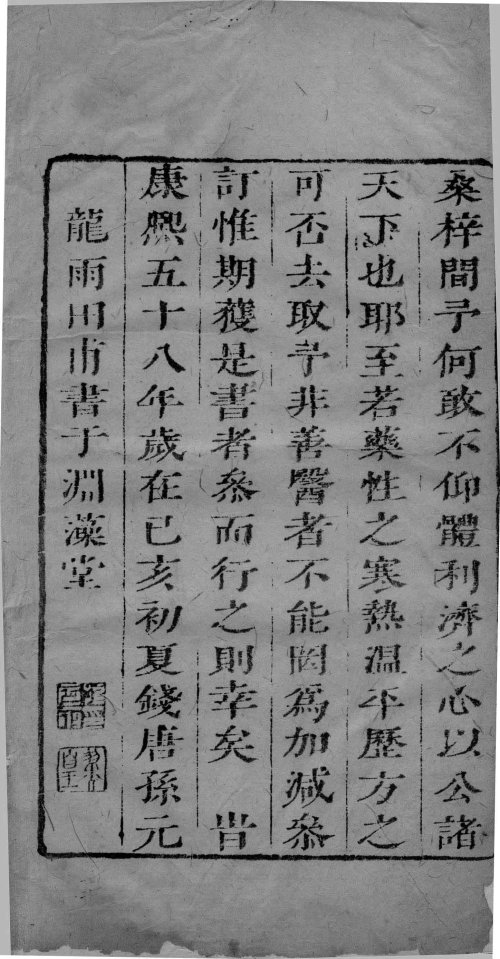 桑梓間予何敢不仰體利濟之心以公諸
天下也耶至若藥性之寒熱温平歷方之
可否去取予非善醫者不能罔爲加減叅
訂惟期獲是書者叅而行之則幸矣 旹
康熙五十八年歲在已亥初夏錢唐孫元
龍雨田甫書于淵藻堂